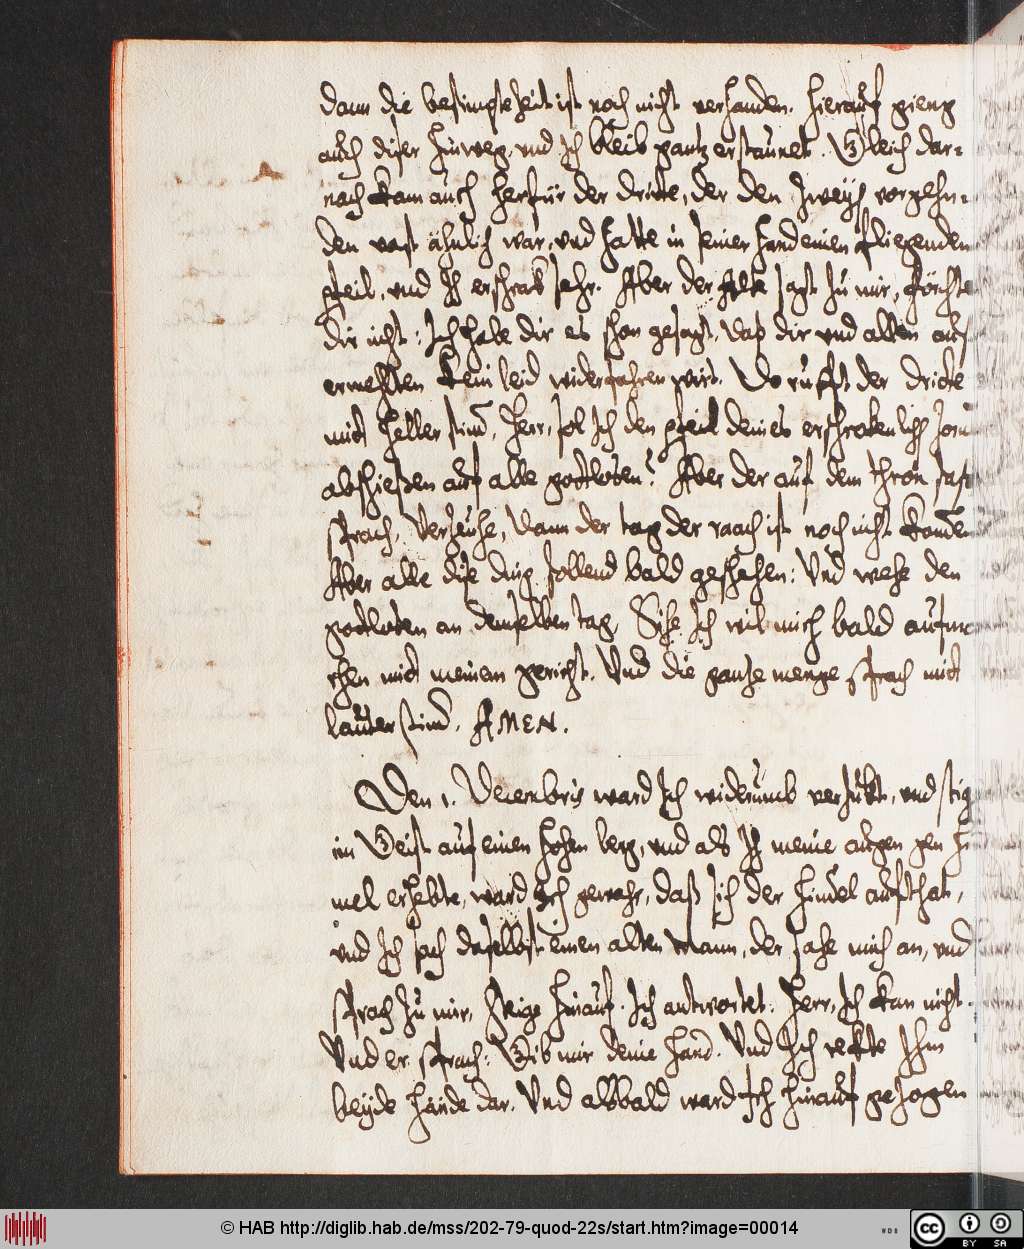 dann die bestimpte Zeit ist noch nicht verhanden. Hierauf gieng
auch diser hinweg, und Ich bleib gantz erstaunet. Gleich dar=
nach kam auch herfür der dritte, der den Zweyen vorgehn=
den vast ähnlich war, und hatte in seiner hand einen fliegenden
pfeil, und Ich erschrak sehr. Aber der Alte sagt zu mir, förchte
dir nicht: Ich habe dir es schon gesagt, daß dir und allen auß
erwehlten kein leid widerfahren wirt. Do rufft der dritte
mitt heller stim̄, Herr, sol Ich den pfeil deines erschrokenlich Zorns
abschießen auf alle gottlosen? Aber der auf dem thron saß
sprach, Verzeuhe, dann der tag der raach ist noch nicht kom̄en
Aber alle dise ding sollend bald geschehen: Und wehe den
gottlosen an demselben tag. Sihe Ich wil mich bald aufma
chen mitt meinem gericht. Und die gantze menge sprach mitt
lauter stim̄. AMEN.
Den 1. Decembris ward Ich widerumb verzukt, und stig
im Geist auf einen hohen berg, und als Ich meine augen gen Hi
mel erhebte, ward Ich gewahr, daß sich der himel aufthat,
und Ich sach daselbst einen alten Mann, der sahe mich an, und
sprach zu mir, steige hinauf. Ich antwortet: Herr, Ich kan nicht.
Und er sprach: Gib mir deine hand. Und Ich rekte Ihm
beyde hände dar. Und alsbald ward Ich hinauf gezogen
© HAB http://diglib.hab.de/mss/202-79-quod-22s/start.htm?image=00014
WDB
CC BY SA